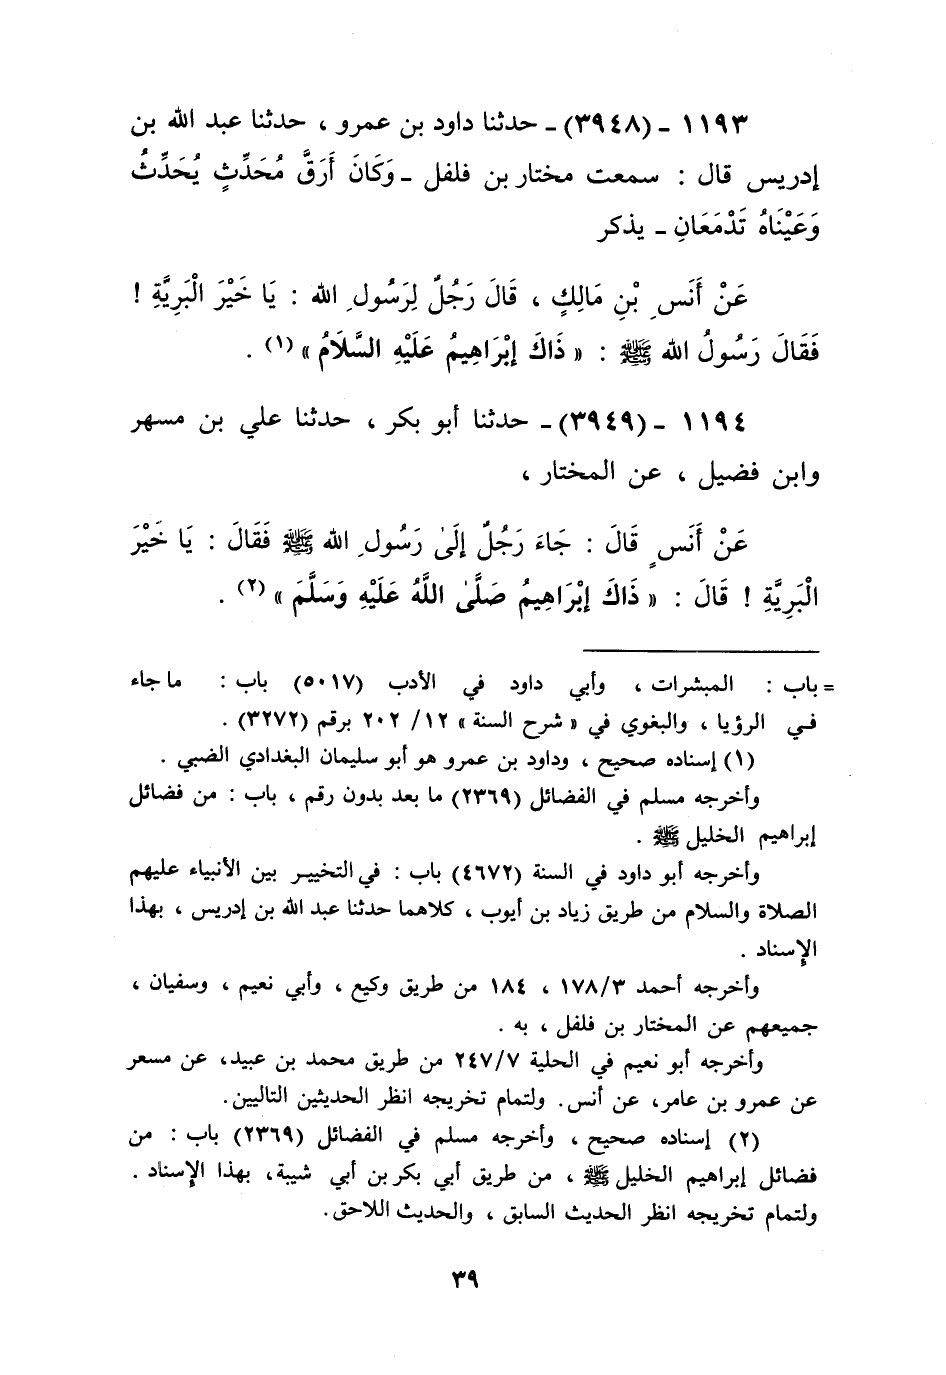 ١١٩٣ - (٣٩٤٨) - حدثنا داود بن عمرو ، حدثنا عبد الله بن
إدريس قال : سمعت مختار بن فلفل - وَكَانَ أَرَقَّ مُحَدِّثٍ يُحَدِّثُ
وَعَيْنَاهُ تَدْمَعَانِ - يذكر
عَنْ أَنَسِ بْنِ مَالِكٍ ، قَالَ رَجُلٌ لِرَسُولِ الله : يَا خَيْرَ الْبَرِيَّةِ !
فَقَالَ رَسُولُ الله ﷺ : « ذَاكَ إِبْرَاهِيمُ عَلَيْهِ السَّلَامُ » (١) .
١١٩٤ - (٣٩٤٩) - حدثنا أبو بكر ، حدثنا علي بن مسهر
وابن فضيل ، عن المختار ،
عَنْ أَنَسٍ قَالَ : جَاءَ رَجُلٌ إِلَىٰ رَسُولِ الله ﷺ فَقَالَ : يَا خَيْرَ
الْبَرِيَّةِ ! قَالَ : « ذَاكَ إِبْرَاهِيمُ صَلَّىٰ اللَّهُ عَلَيْهِ وَسَلَّمَ » (٢) .
= باب : المبشرات ، وأبي داود في الأدب (٥٠١٧) باب : ما جاء
في الرؤيا ، والبغوي في « شرح السنة » ١٢/ ٢٠٢ برقم (٣٢٧٢) .
(١) إسناده صحيح ، وداود بن عمرو هو أبو سليمان البغدادي الضبي .
وأخرجه مسلم في الفضائل (٢٣٦٩) ما بعد بدون رقم ، باب : من فضائل
إبراهيم الخليل ﷺ .
وأخرجه أبو داود في السنة (٤٦٧٢) باب : في التخيير بين الأنبياء عليهم
الصلاة والسلام من طريق زياد بن أيوب ، كلاهما حدثنا عبد الله بن إدريس ، بهذا
الإسناد .
وأخرجه أحمد ١٧٨/٣ ، ١٨٤ من طريق وكيع ، وأبي نعيم ، وسفيان ،
جميعهم عن المختار بن فلفل ، به .
وأخرجه أبو نعيم في الحلية ٢٤٧/٧ من طريق محمد بن عبيد، عن مسعر
عن عمرو بن عامر، عن أنس. ولتمام تخريجه انظر الحديثين التاليين.
(٢) إسناده صحيح ، وأخرجه مسلم في الفضائل (٢٣٦٩) باب : من
فضائل إبراهيم الخليل ﷺ ، من طريق أبي بكر بن أبي شيبة، بهذا الإسناد .
ولتمام تخريجه انظر الحديث السابق ، والحديث اللاحق.
٣٩